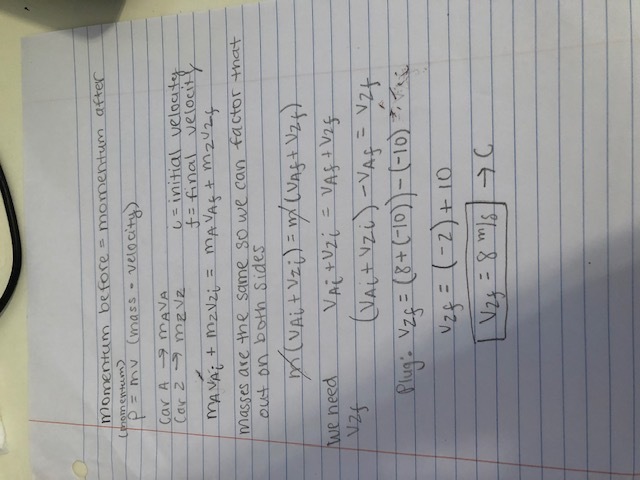 momentum before = momentum after
(momentum)
p = mv (mass • velocity)
Car A → mAVA i = initial velocity
Car 2 → m2V2 f = final velocity
mAVAi + m2V2i = mAVAf + m2V2f
masses are the same so we can factor that
out on both sides
m(VAi + V2i) = m(VAf + V2f)
we need VAi + V2i = VAf + V2f
V2f (VAi + V2i) - VAf = V2f
Plug: V2f = (8 + (-10)) - (-10)
V2f = (-2) + 10
V2f = 8 m/s → C